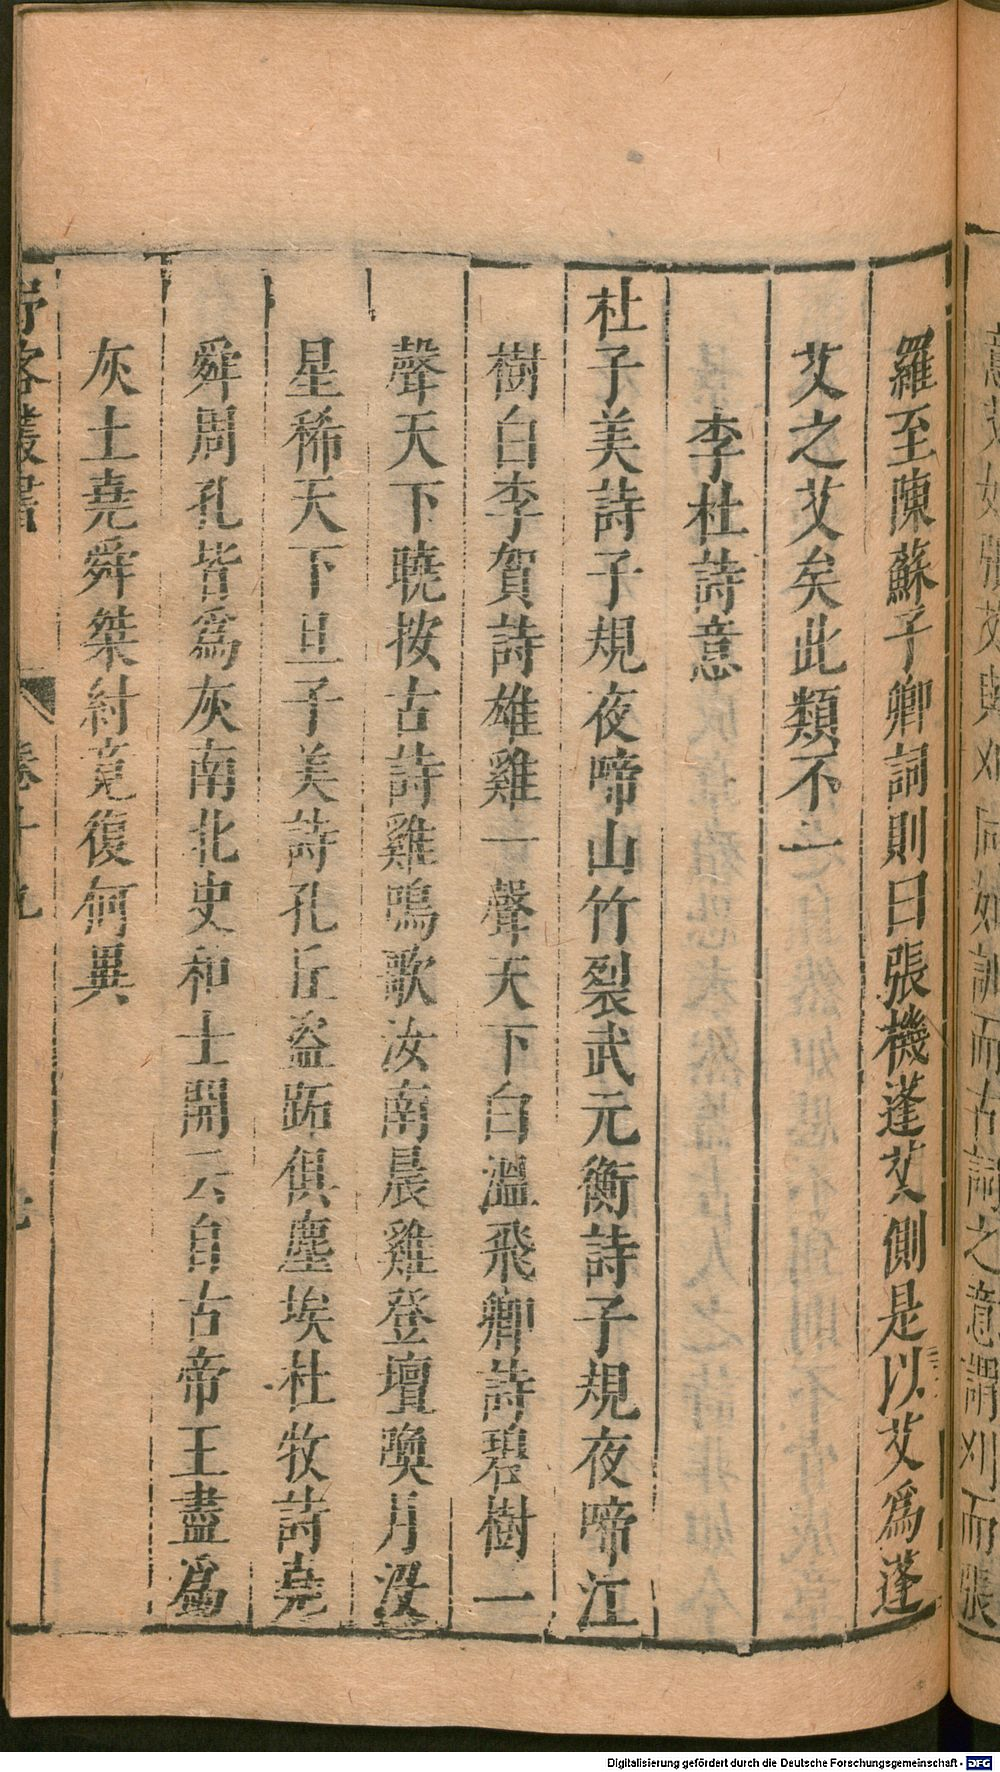 羅至陳蘇子卿詞則曰張機蓬艾側是以艾爲蓬
艾之艾矣此類不一
李杜詩意
杜子美詩子規夜啼山竹裂武元衡詩子規夜啼江
樹白李賀詩雄雞一聲天下白溫飛卿詩碧樹一
聲天下曉按古詩雞鳴歌汝南晨雞登壇喚月沒
星稀天下旦子美詩孔丘盜跖俱塵埃杜牧詩堯
舜周孔皆爲灰南北史和士開云自古帝王盡爲
灰土堯舜桀紂竟復何異
Digitalisierung gefördert durch die Deutsche Forschungsgemeinschaft - DFG